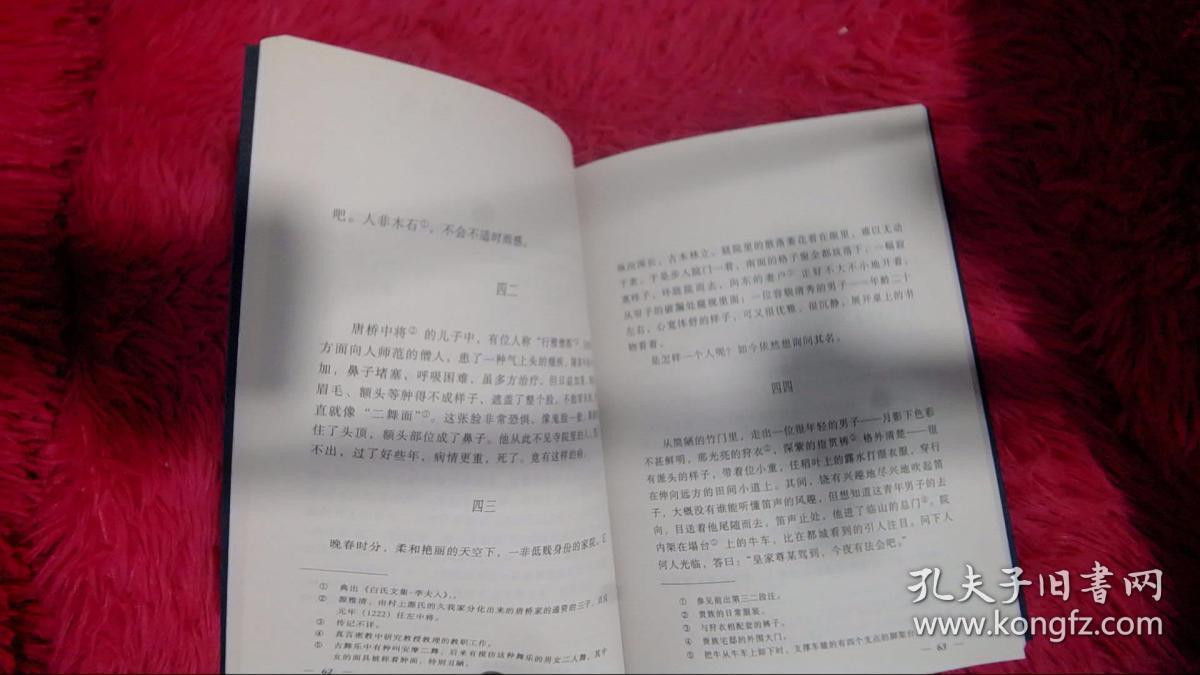 吧。人非木石①，不会不适时而感。
四二
唐桥中将②的儿子中，有位人称“行雅僧都”
方面向人师范的僧人，患了一种气上头的瘾疾，随着年
加，鼻子堵塞，呼吸困难，虽多方治疗，但日益加重，
眉毛、额头等肿得不成样子，遮盖了整个脸，不能
直就像“二舞面”⑤。这张脸非常恐惧，像鬼脸一般，
住了头顶，额头部位成了鼻子。他从此不见寺院里的人，
不出，过了好些年，病情更重，死了。竟有这样的病。
四三
晚春时分，柔和艳丽的天空下，一非低贱身份的家院。
① 典出《白氏文集·李夫人》。
② 源雅清，由村上源氏的久我家分化出来的唐桥家的通资的三子，
元年（1222）任左中将。
③ 传记不详。
④ 真言密教中研究教授教理的教职工作。
⑤ 古舞乐中有种叫安摩二舞，后来有模仿这种舞乐的男女二人舞，其中
女的面具被称着肿面，特别丑陋。
— 62 —
纵向深长，古木林立。庭院里的散落萎花看在眼里，难以无动
于衷。于是步入院门一看，南面的格子窗全都放落了，一幅寂
寞样子，环庭院而去，向东的妻户①正好不大不小地开着；
从帘子的破漏处窥视里面：一位容貌清秀的男子——年龄二十
左右，心宽体舒的样子，可又很优雅，很沉静，展开桌上的书
物看着。
是怎样一个人呢？如今依然想询问其名。
四四
从简陋的竹门里，走出一位很年轻的男子——月影下色彩
不甚鲜明，那光亮的狩衣②，深紫的指贯裤③格外清楚——很
有派头的样子，带着位小童，任稻叶上的露水打湿衣服，穿行
在伸向远方的田间小道上。其间，饶有兴趣地尽兴地吹起笛
子，大概没有谁能听懂笛声的风趣，但想知道这青年男子的去
向，目送着他尾随而去，笛声止处，他进了临山的总门④。院
内架在塌台⑤上的牛车，比在都城看到的引人注目。问下人
何人光临，答曰：“皇家尊某驾到，今夜有法会吧。”
① 参见前出第三二段注。
② 贵族的日常服装。
③ 与狩衣相配套的裤子。
④ 贵族宅邸的外围大门。
⑤ 把牛从牛车上卸下时，支撑车辕的有四个支点的脚架台
— 63 —
孔夫子旧书网
www.kongfz.com